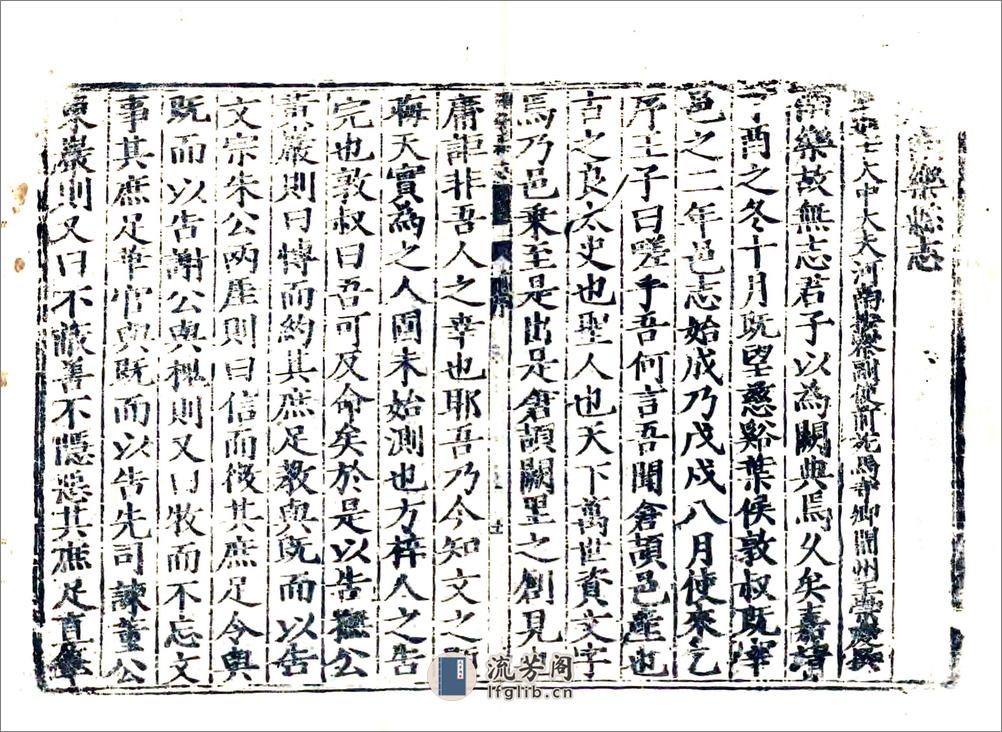 樂縣志
士大中大夫河南按察副使前
南樂故無志君子以為闕典焉久矣嘉靖
丁酉之冬十月既望慈谿葉侯敦叔既宰
邑之二年邑志始成乃戊戌八月使來乞
序王子曰嗟乎吾何言吾聞倉頡邑產也
古之良太史也聖人也天下萬世資文字
焉乃邑乘至是出是倉頡闕里之創見
庸詎非吾人之幸也耶吾乃今知文之
晦天實為之人固未始測也方梓人之告
完也敦叔曰吾可反命矣於是以告撫公
嚴則曰博而約其庶足教與既而以告
文宗朱公兩崖則曰信而徵其庶足令與
既而以告謝公與槐則又曰牧而不忘文
事其庶足華官與既而以告先司諫董公
東巖則又曰不蔽善不隱惡其庶足直
流芳阁
lfglib.cn